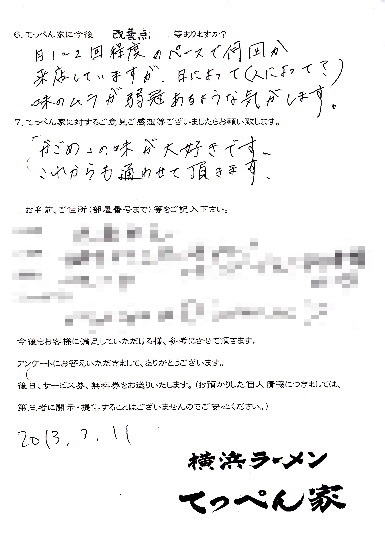 6.てっぺん家に今後 改善点 等ありますか?
月1~2回程度のペースで何回か
来店していますが、日によって(人によって?)
味のムラが若干あるような気がします。
7.てっぺん家に対するご意見ご感想等ございましたらお願い致します。
の味が大好きです。
これからも通わせて頂きます。
お名前、ご住所(部屋番号まで)等をご記入下さい。
今後もお客様に満足していただける様、参考にさせて頂きます。
アンケートにお答えいただきまして、ありがとうございます。
後日、サービス券、無料券をお送りいたします。(お預かりした個人情報につきましては、
第三者に開示・提供することはございませんのでご安心ください。)
2013.7.11
横浜ラーメン
てっぺん家